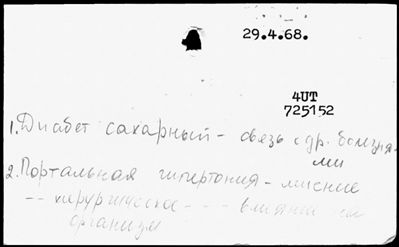 29.4.68.
4UT
725152
1. Диабет сахарный - связь с др. болезня-
ми
2. Портальная гипертония -
-- хирургическое - - - влияние на
организм